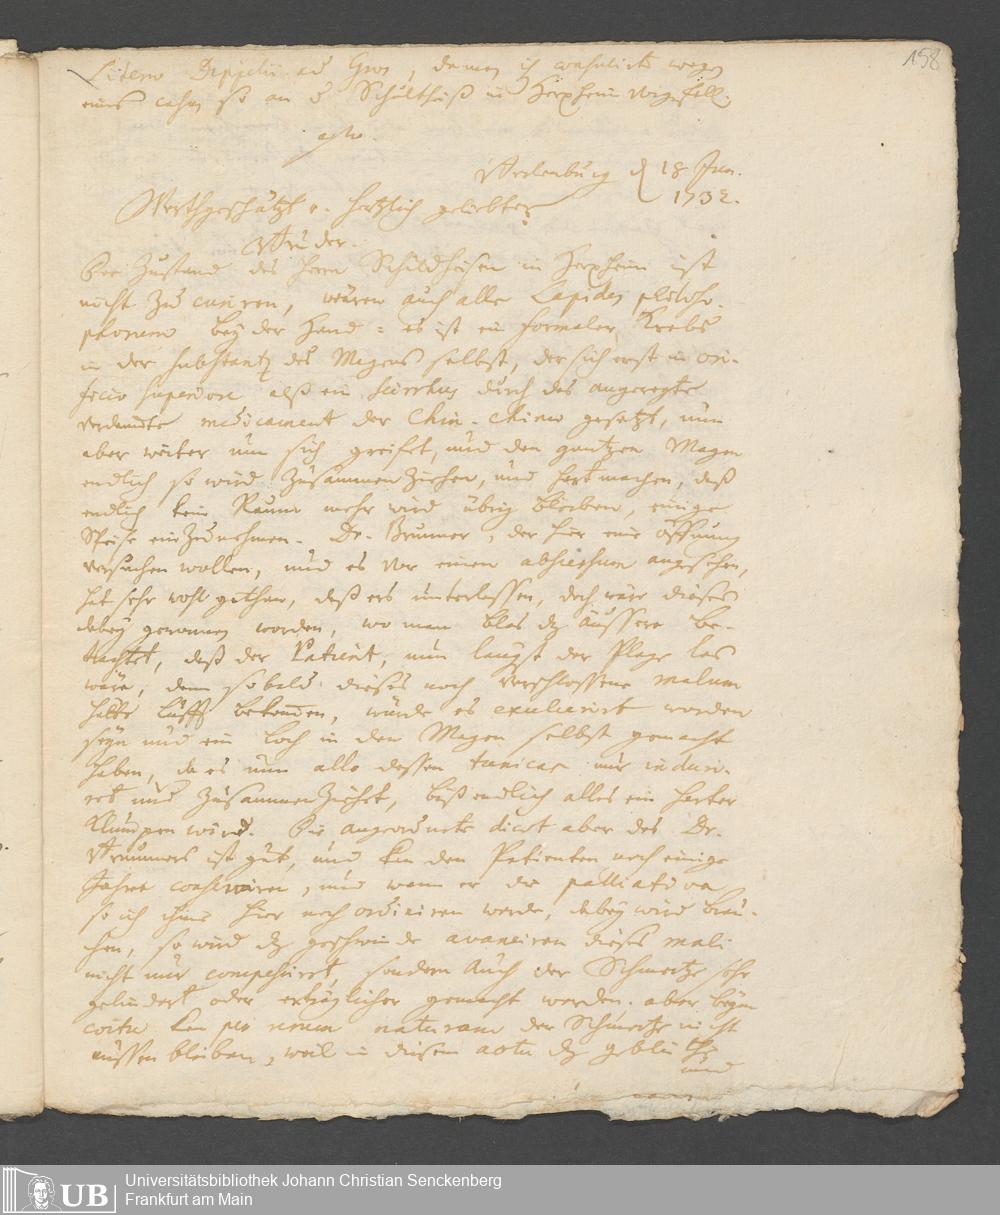 158
Literæ Dippelii ad Gros, da man ihn consulirte wegen
eines casus so an d Schultheiß in Herxheim
Berlenburg d 18 Jun.
1732.
Werthgeschätzt u. hertzlich geliebter
Bruder.
Der Zustand des Herrn Schuldheisen in Herxheim ist
nicht zu curiren, wären auch alle Lapides philoso-
phorum bey der Hand: es ist ein formaler Krebs
in der substantz des Magens selbst, der sich erst in ori-
ficio superiore alß ein scirrhus durch das angeregte
verdamte medicament der Chin-China gesetzt, nun
aber weiter um sich greifet, und den gantzen Magen
endlich so wird zusammen ziehen, und hart machen, daß
endlich kein Raum mehr wird übrig bleiben, einige
Speise einzunehmen. Dr. Brunner, der hier eine öffnung
versuchen wollen, und es vor einen abscessum angesehen,
hat sehr wohl gethan, daß ers unterlassen, doch wäre dieses
dabey gewonnen worden, wo man blos dz äussere be-
trachtet, daß der Patient, nun längst der Plage los
wäre, denn so bald dieses noch verschlossene malum
hätte Lufft bekommen, würde es exulcerirt worden
seyn und ein Loch in den Magen selbst gemacht
haben, da es nun alle dessen tunicas nur induri-
ret und zusammen ziehet, biß endlich alles ein harter
Klumpen wird. Die angeordnete diæt aber des Dr.
Brunners ist gut, und kan den Patienten noch einige
Jahre conserviren, und wann er die palliativa
so ich ihme hier noch ordiniren werde, dabey wird brau-
chen, so wird dz geschwinde avanciren dieses mali
nicht nur compescirt, sondern auch der Schmertze sehr
gelindert oder erträglicher gemacht werden. aber beym
coitu kan per rerum naturam der Schmertze nicht
aussen bleiben, weil in diesem actu dz geblüthe
und
Universitätsbibliothek Johann Christian Senckenberg
Frankfurt am Main
UB